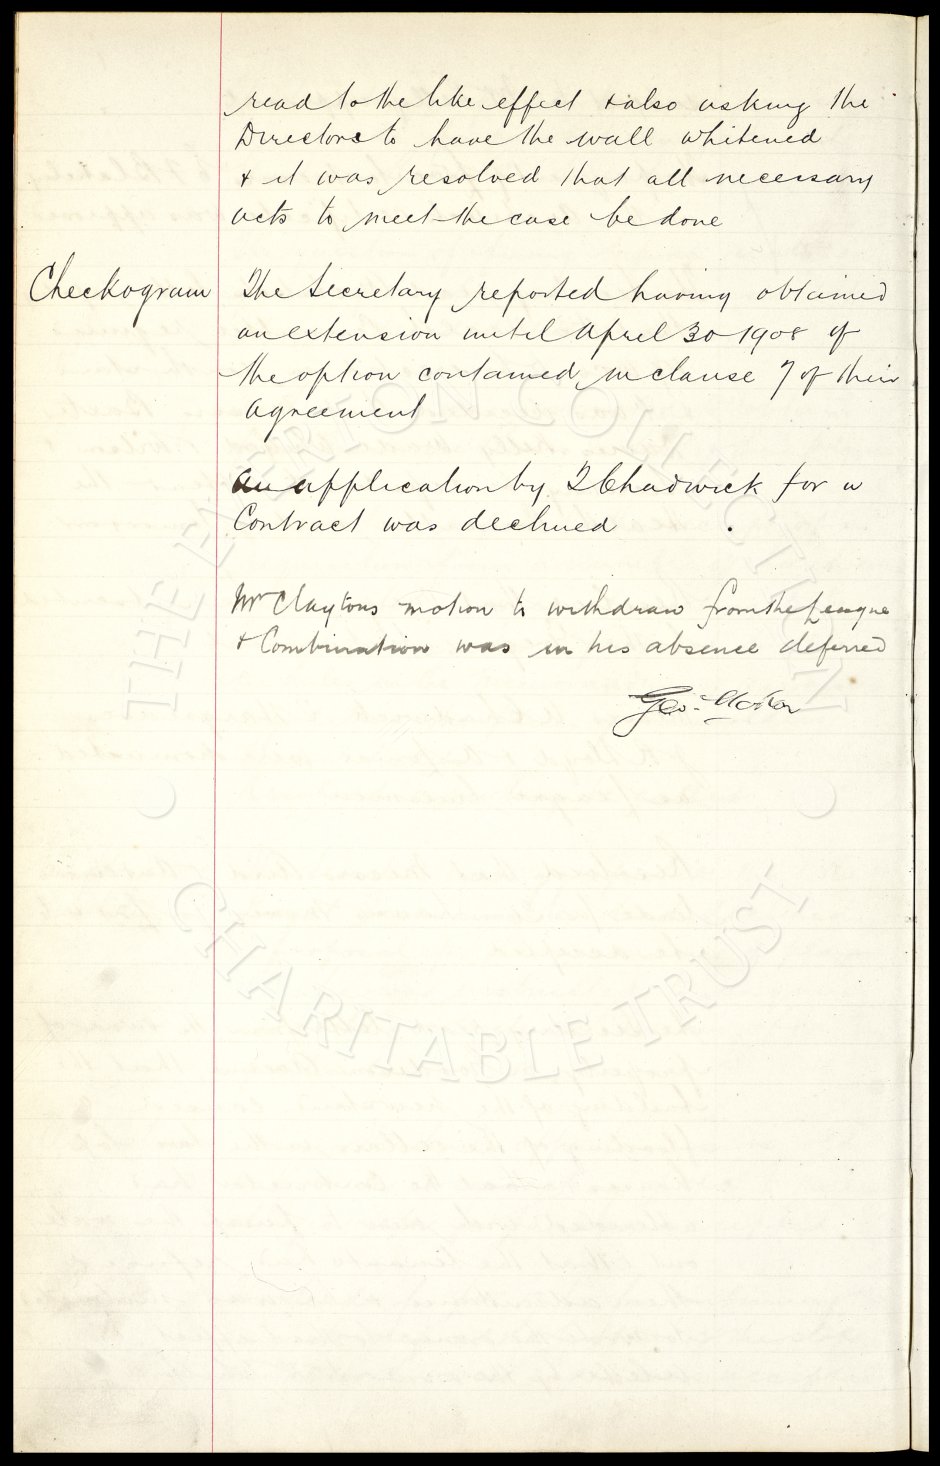 read to the like effect & also asking the
Directors to have the wall whitened
& it was resolved that all necessary
acts to meet the case be done
Checkogram
The Secretary reported having obtained
an extension until April 30 1908 of
the option contained in clause 7 of their
Agreement
An application by T Chadwick for a
Contract was declined
Mr Claytons motion to withdraw from the League
& Combination was in his absence deferred
Geo:
THE EVERTON COLLECTION
CHARITABLE TRUST